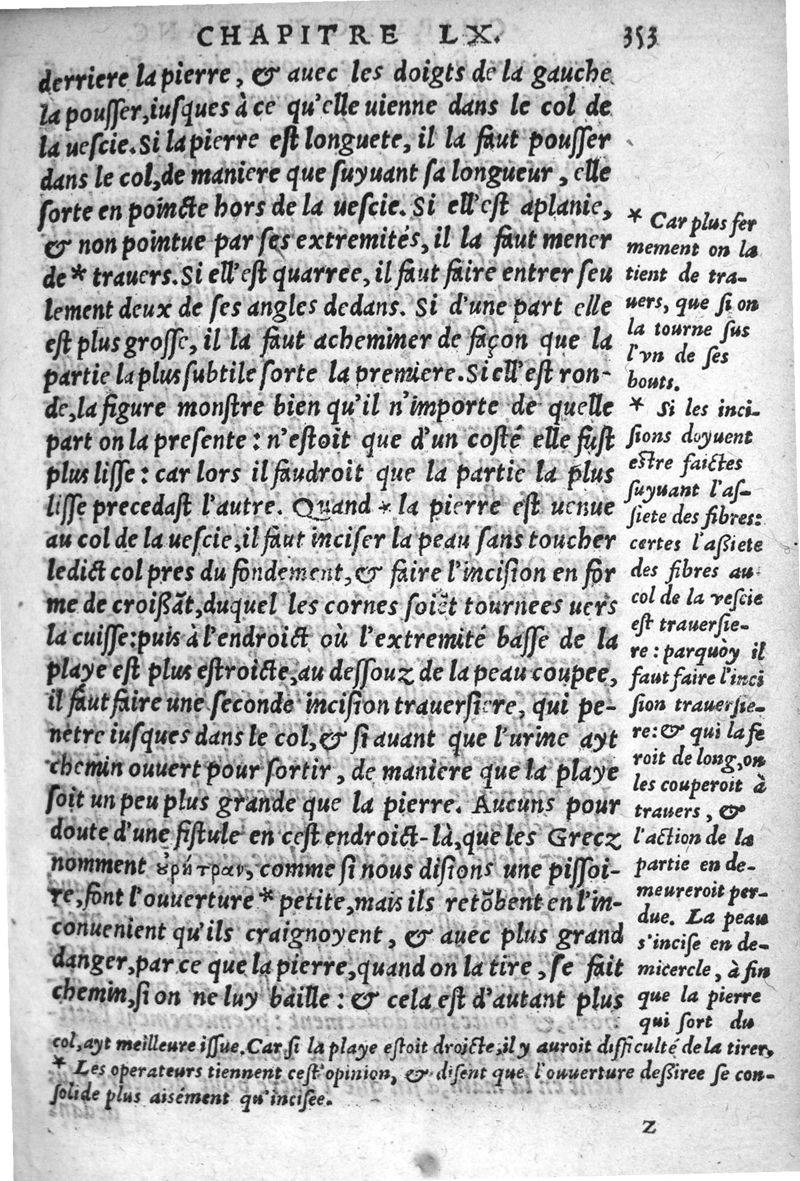 CHAPITRE LX. 353
derriere la pierre, & auec les doigts de la gauche
la pouſſer,iuſques à ce qu'elle uienne dans le col de
la ueſcie.Si la pierre eſt longuete, il la faut pouſſer
dans le col,de maniere que ſuyuant ſa longueur, elle
ſorte en poincte hors de la ueſcie. Si ell'eſt aplanie,
& non pointue par ſes extremités, il la faut mener
de * trauers.Si ell'eſt quarree, il faut faire entrer ſeu
lement deux de ſes angles dedans. Si d'une part elle
eſt plus groſſe, il la faut acheminer de façon que la
partie la plus ſubtile ſorte la premiere.Si ell'eſt ron-
de,la figure monſtre bien qu'il n'importe de quelle
part on la preſente: n'eſtoit que d'un coſté elle fuſt
plus liſſe: car lors il faudroit que la partie la plus
liſſe precedaſt l'autre. Quand * la pierre eſt uenue
au col de la ueſcie,il faut inciſer la peau ſans toucher
ledict col pres du fondement, & faire l'inciſion en for
me de croißãt,duquel les cornes ſoiẽt tournees uers
la cuiſſe:puis à l'endroict où l'extremité baſſe de la
playe eſt plus eſtroicte,au deſſouz de la peau coupee,
il faut faire une ſeconde inciſion trauerſiere, qui pe-
netre iuſques dans le col,& ſi auant que l'urine ayt
chemin ouuert pour ſortir, de maniere que la playe
ſoit un peu plus grande que la pierre. Aucuns pour
doute d'une fiſtule en ceſt endroict-là,que les Grecz
nomment οὐρήτραν, comme ſi nous diſions une piſſoi-
re,font l'ouuerture * petite,mais ils retõbent en l'in-
conuenient qu'ils craignoyent, & auec plus grand
danger,par ce que la pierre,quand on la tire, ſe fait
chemin,ſi on ne luy baille: & cela eſt d'autant plus
* Car plus fer
mement on la
tient de tra-
uers, que ſi on
la tourne ſus
l'vn de ſes
bouts.
* Si les inci-
ſions doyuent
eſtre faictes
ſuyuant l'aſ-
ſiete des fibres:
certes l'aßiete
des fibres au
col de la veſcie
eſt trauerſie-
re: parquoy il
faut faire l'inci
ſion trauerſie-
re:& qui la fe
roit de long,on
les couperoit à
trauers, &
l'action de la
partie en de-
meureroit per-
due. La peau
s'inciſe en de-
micercle, à fin
que la pierre
qui ſort du
col,ayt meilleure iſſue.Car,ſi la playe eſtoit droicte,il y auroit difficulté de la tirer.
* Les operateurs tiennent ceſt'opinion, & diſent que l'ouuerture deßiree ſe con-
ſolide plus aisément qu'inciſee.
Z